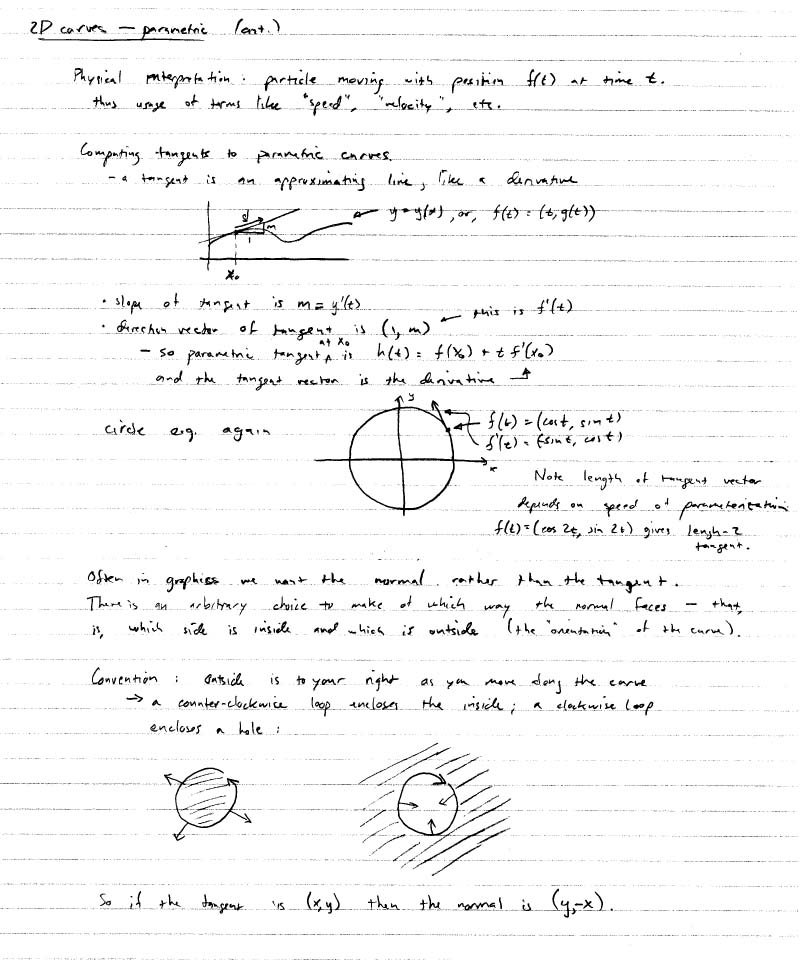 2D curves — parametric (cont.)
Physical interpretation: particle moving with position f(t) at time t.
thus usage of terms like "speed", "velocity", etc.
Computing tangents to parametric curves.
- a tangent is an approximating line, like a derivative
y = y(x), or, f(t) = (t, y(t))
d
m
1
x₀
• slope of tangent is m = y'(t)
this is f'(t)
• direction vector of tangent is (1, m)
at x₀
- so parametric tangent ∧ is h(t) = f(x₀) + t f'(x₀)
and the tangent vector is the derivative
y
circle e.g. again
f(t) = (cos t, sin t)
f'(t) = (-sin t, cos t)
x
Note length of tangent vector
depends on speed of parameterization
f(t) = (cos 2t, sin 2t) gives length-2
tangent.
Often in graphics we want the normal rather than the tangent.
There is an arbitrary choice to make of which way the normal faces — that,
is, which side is inside and which is outside (the "orientation" of the curve).
Convention: outside is to your right as you move along the curve
→ a counter-clockwise loop encloses the inside; a clockwise loop
encloses a hole:
So if the tangent is (x,y) then the normal is (y,-x).